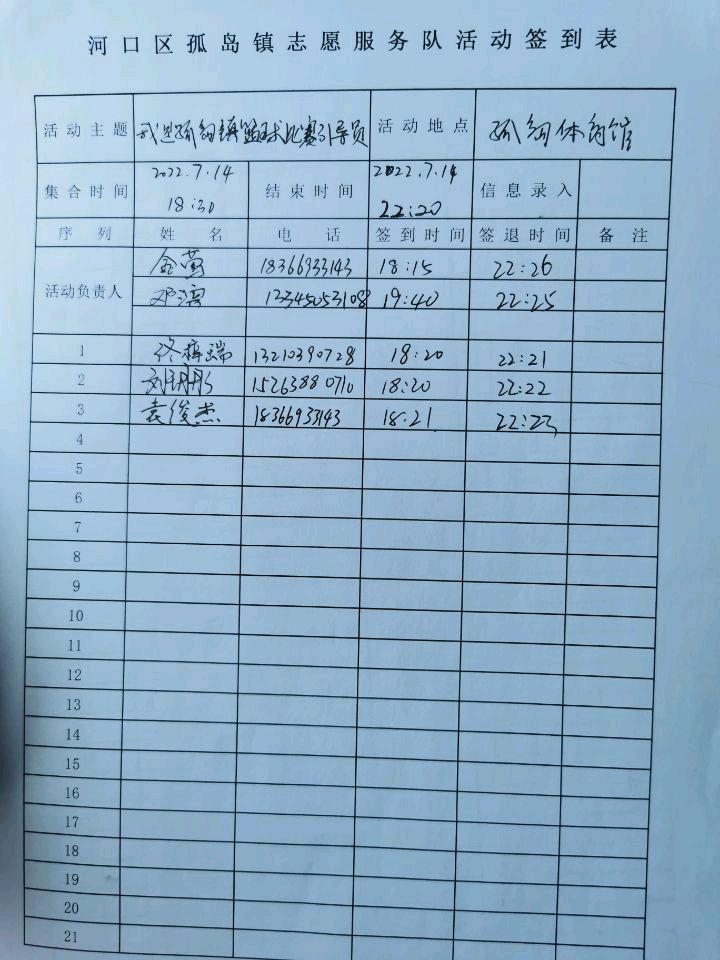 河口区孤岛镇志愿服务队活动签到表
活动主题 我是孤岛镇篮球比赛引导员 活动地点 孤岛体育馆
集合时间 2022.7.14 18:30 结束时间 2022.7.14 22:20 信息录入
序列 姓名 电话 签到时间 签退时间 备注
活动负责人
金莺 18366933143 18:15 22:26
邓滨 12345053108 19:40 22:25
1 佟梓瑞 13210390728 18:20 22:21
2 刘彤彤 15263880710 18:20 22:22
3 袁俊杰 18366933143 18:21 22:23
4
5
6
7
8
9
10
11
12
13
14
15
16
17
18
19
20
21